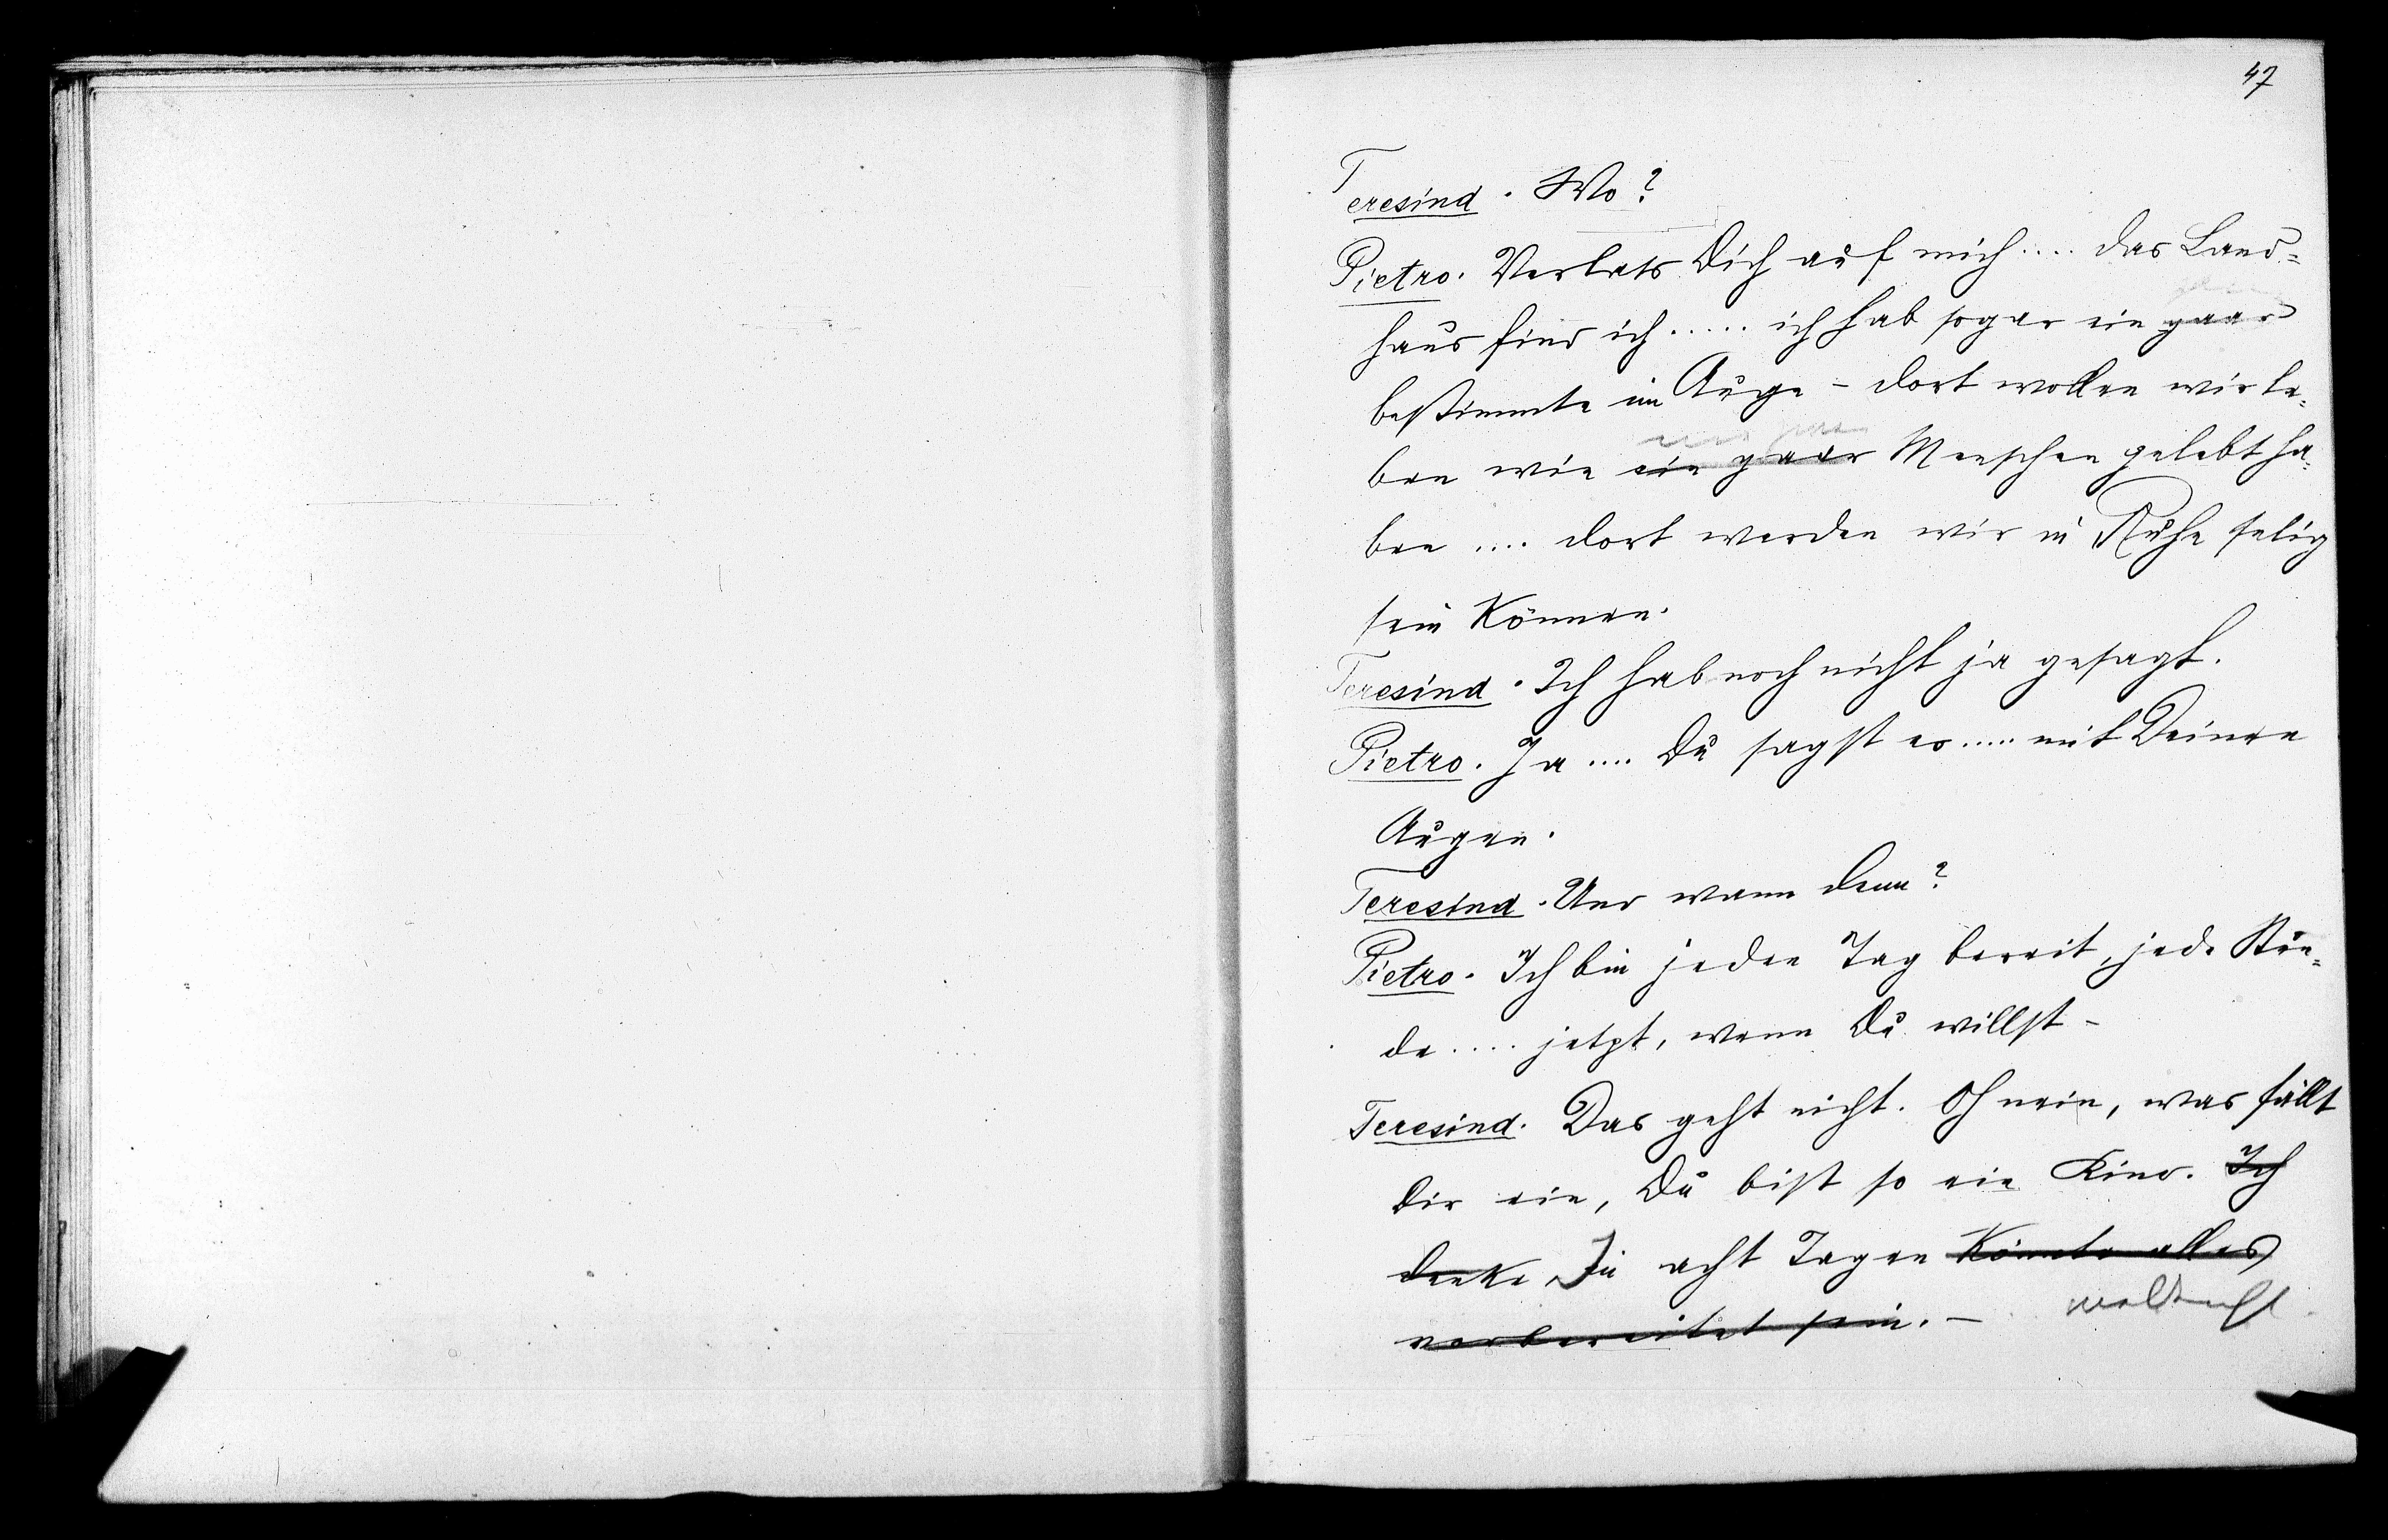 47
Teresina. Wo?
Pietro. Verlass Dich auf mich.... das Land=
haus find ich..... ich hab sogar ein ganz
bestimmtes im Auge – dort wollen wir le=
ben wie ein paar Menschen gelebt ha=
ben .... dort werden wir in Ruhe selig
sein können.
Teresina. Ich hab noch nicht ja gesagt.
Pietro. Ja .... Du sagst es..... mit Deinen
Augen.
Teresina. Und wann denn?
Pietro. Ich bin jeden Tag bereit, jede Stun=
de .... jetzt, wenn Du willst –
Teresina. Das geht nicht. Oh nein, was fällt
Dir ein, Du bist so ein Kind. Ich
denke In acht Tagen könnte alles
vorbereitet sein. –